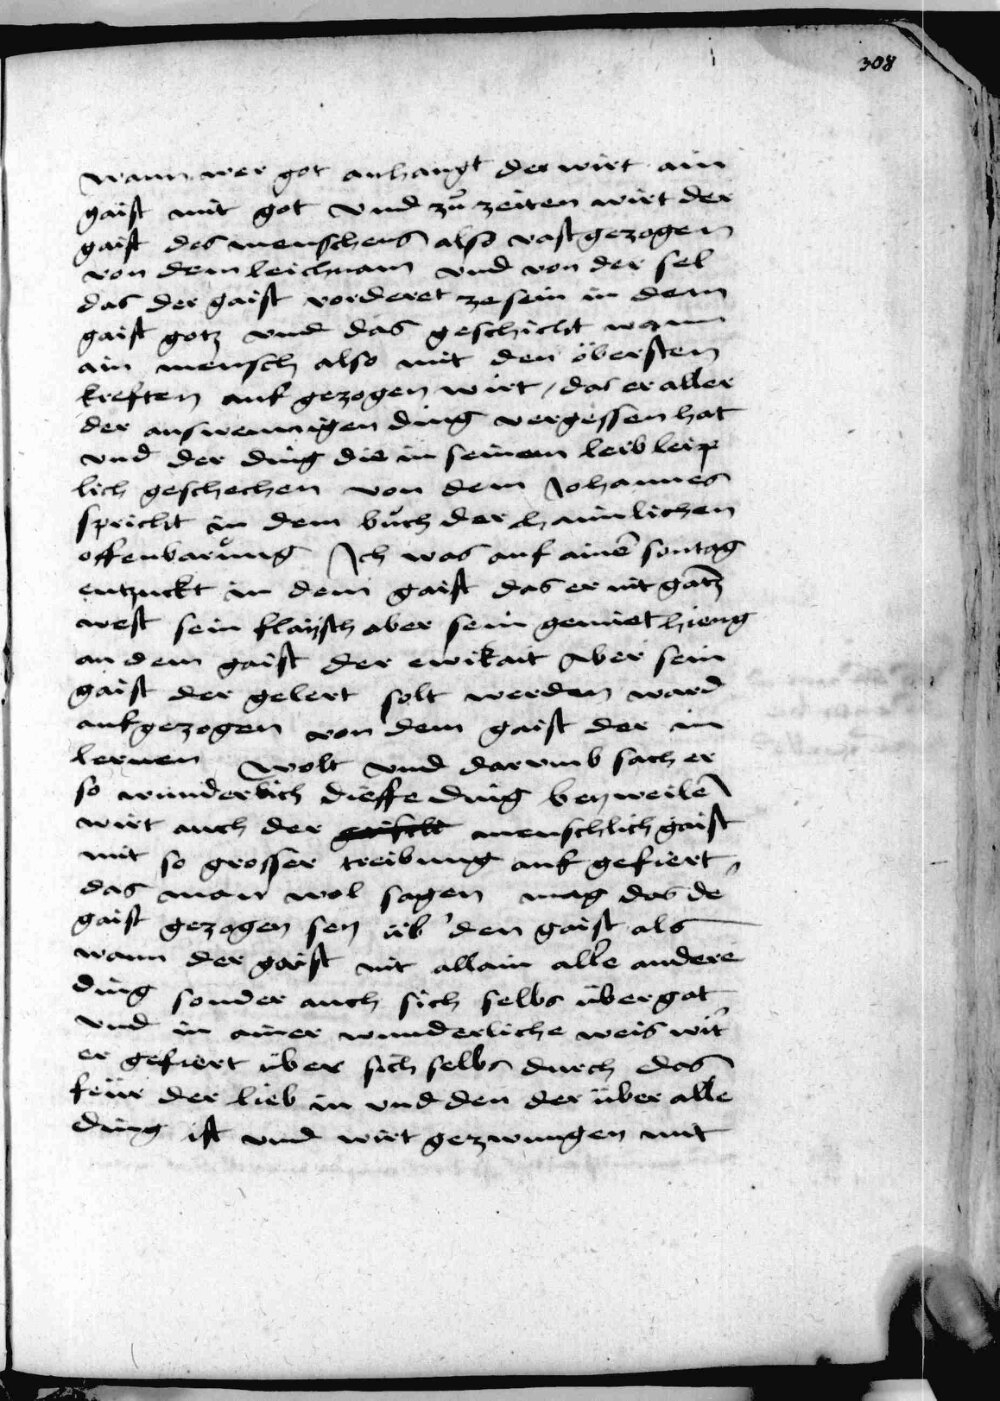 308
wann wer got anhangt der wirt ain
gaist mit got vnd zů zeiten wirt der
gaist des menschens also vast gezogen
von dem leichnam vnd von der sel
das der gaist vorderet ze sein in dem
gaist gotz vnd das geschicht wann
ain mensch also mit den öbersten
kreften auf gezogen wirt / das er aller
der auswennigen ding vergessen hat
vnd der ding die in seinem leib leip
lich geschechen von dem Johannes
spricht in dem bůch der hainlichen
offenbarůng Ich was auf ainē sontag
entzuckt in dem gaist das er nit gantz
west sein flaÿsch aber sein gemiet hieng
an dem gaist der ewikait Aber sein
gaist der gelert solt werden ward
aufgezogen von dem gaist der in
lernen wolt vnd darumb sach er
so wunderlich dieffe ding beÿ weilē
wirt auch der menschlich gaist
mit so grosser treibung auf gefiert
das man wol sagen mag das de'
gaist gezogen seÿ üb' den gaist als
wann der gaist nit allain alle andere
ding sonder auch sich selbs übergat
vnd in ainer wunderliche weis wir't
er gefiert über sich selbs durch das
feür der lieb in vnd den der über alle
ding ist vnd wirt gezwungen mit